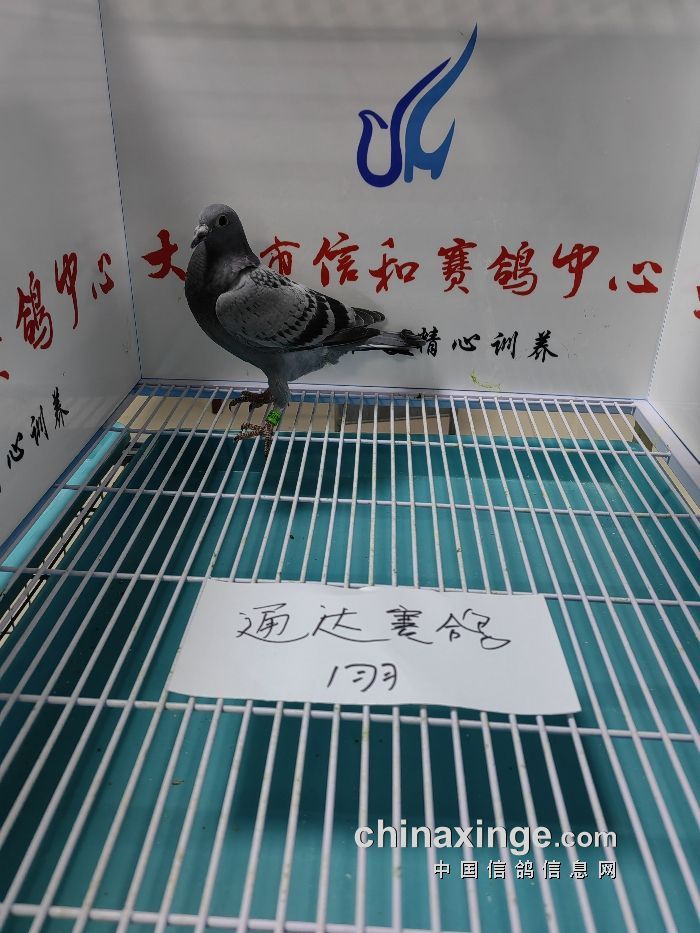 大 市信和赛鸽中心
鸽中心
精心训养
心训养
通达赛鸽
1羽
chinaxinge.com
中国信鸽信息网